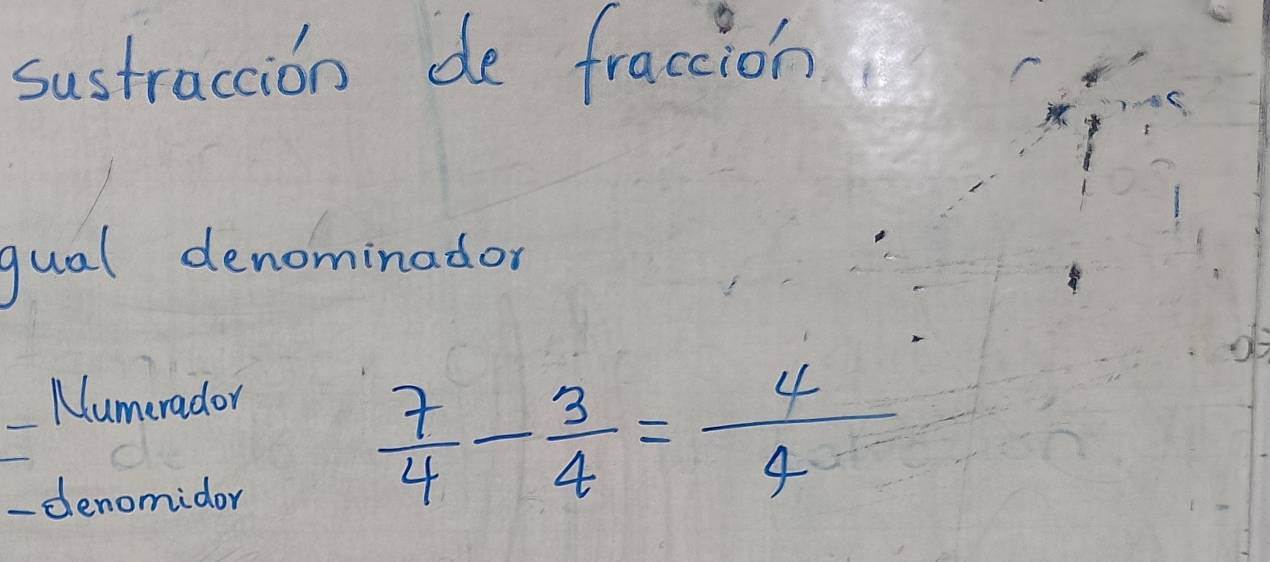 sustracción de fracción
gual denominador
- Numerador
- denomidor
7/4 - 3/4 = 4/4